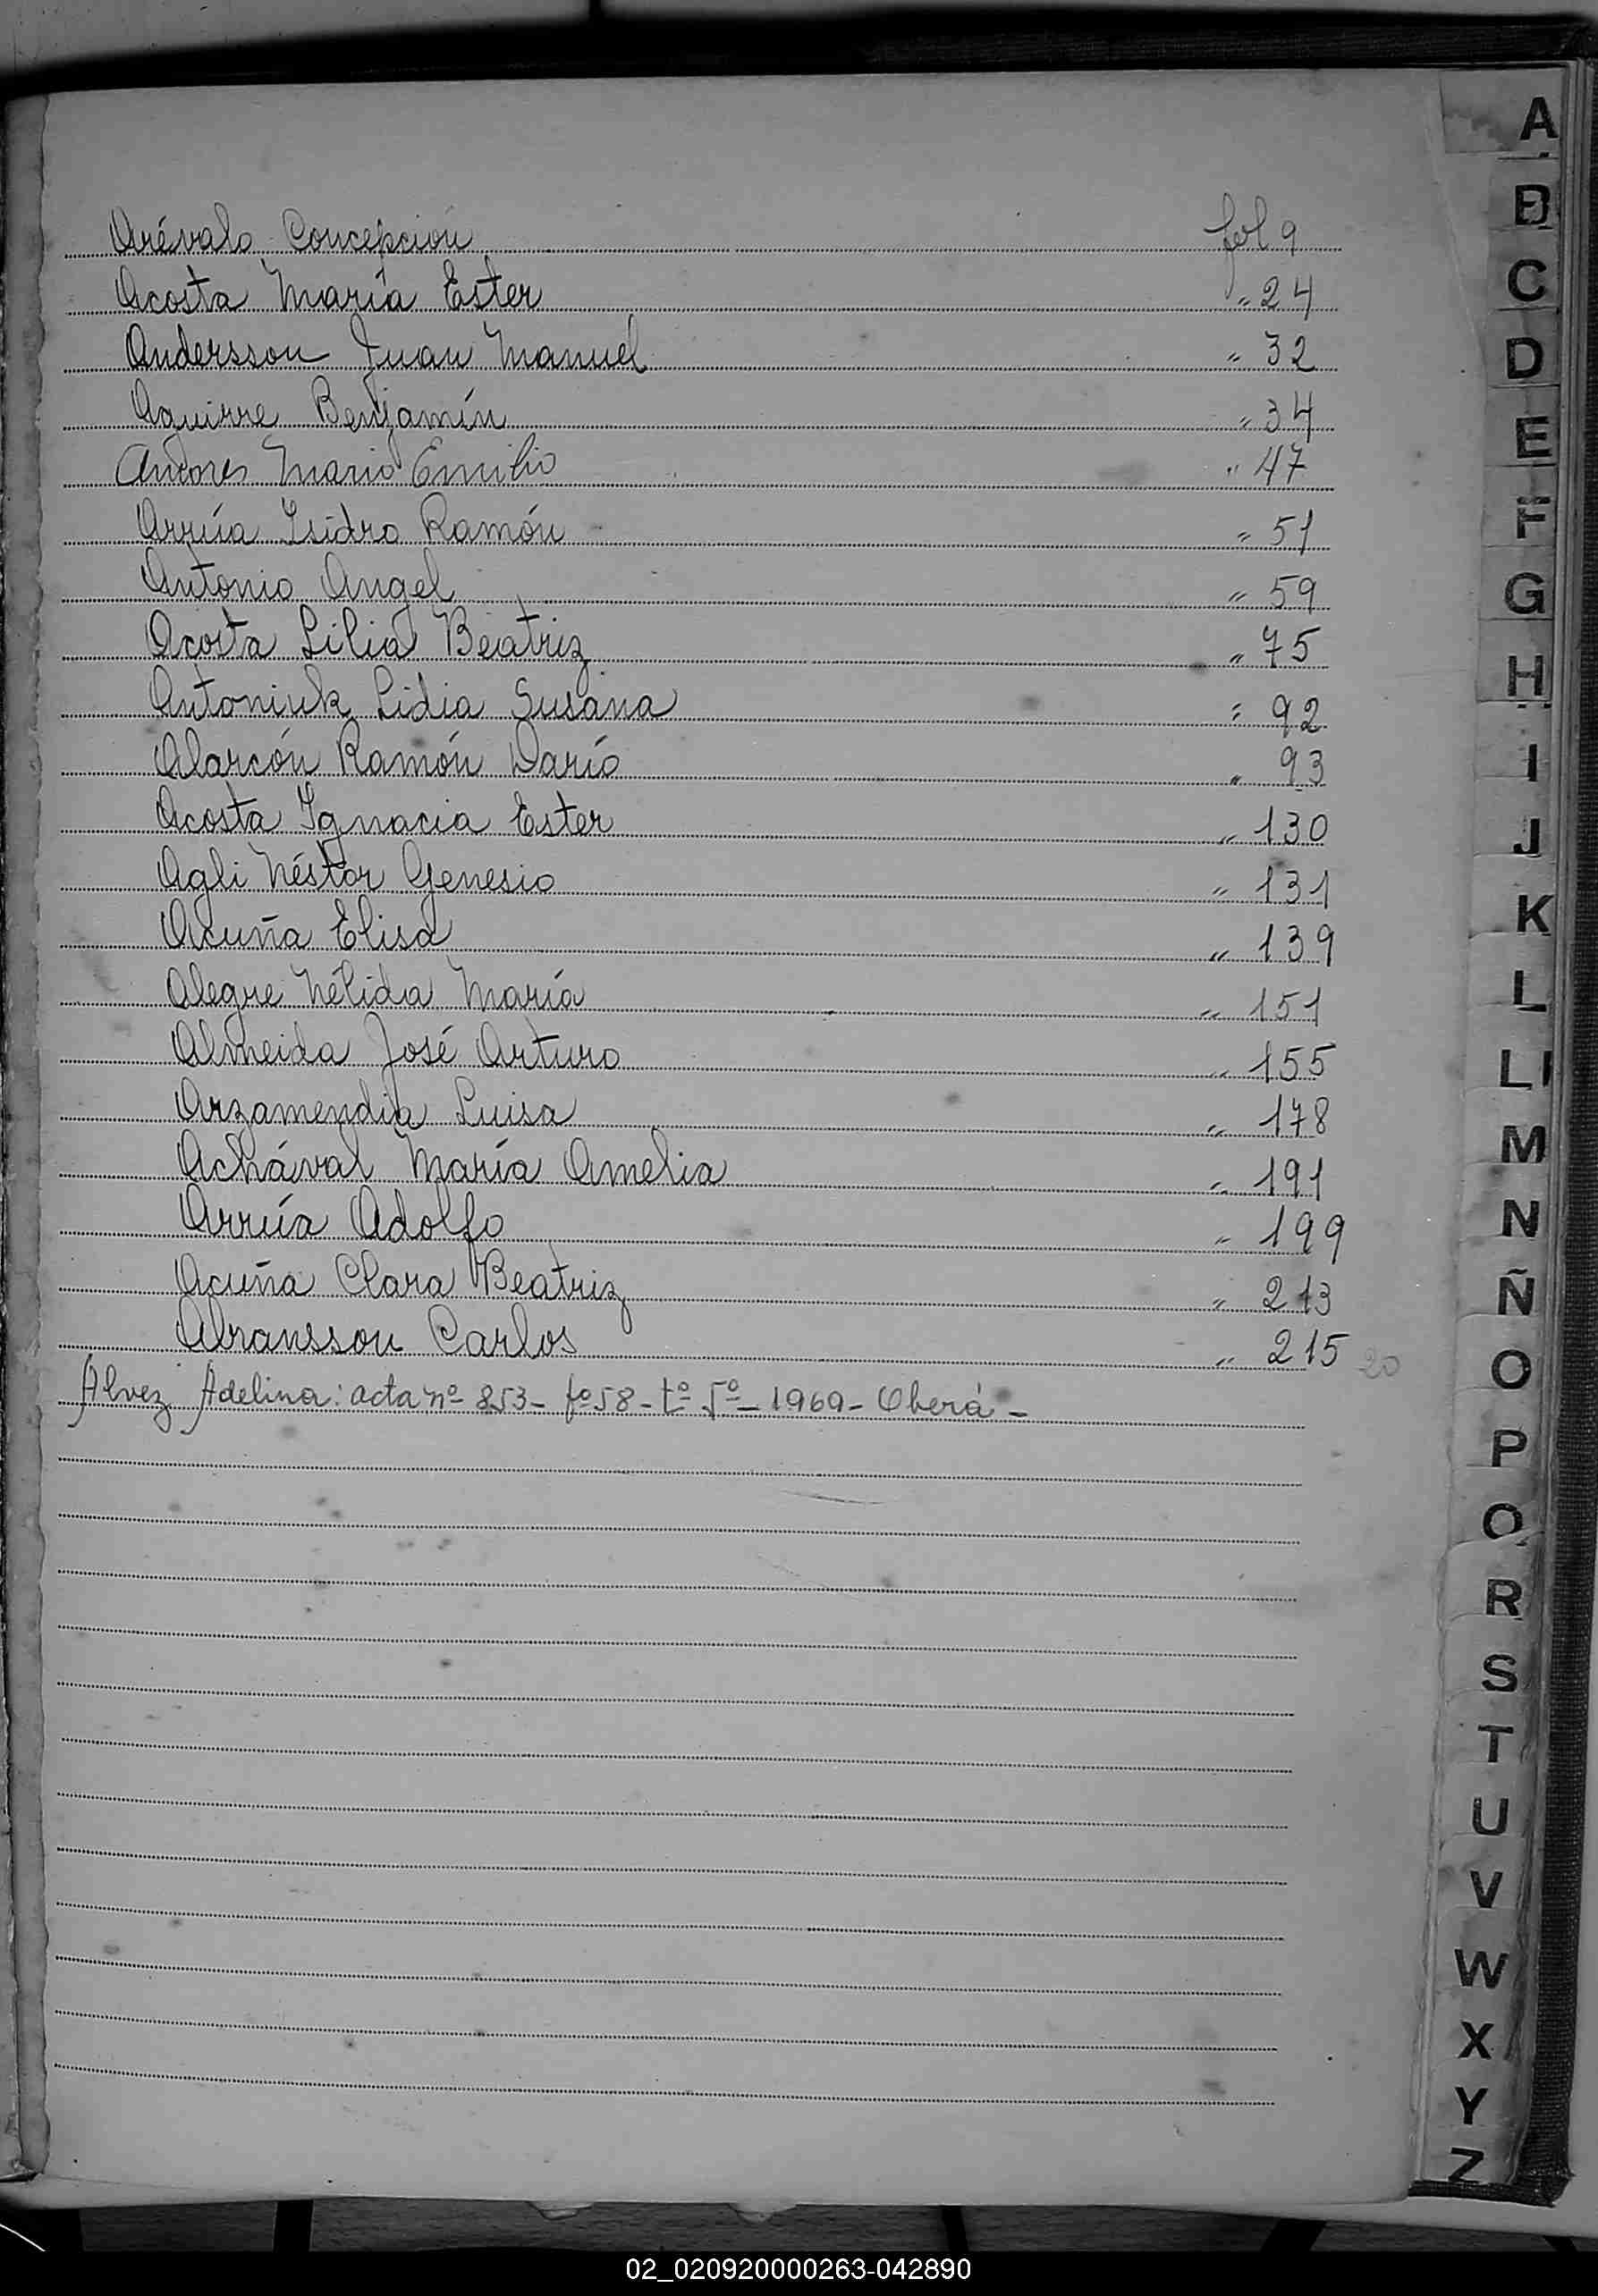 Arévalo Concepción fol 9
Acosta María Ester " 24
Andersson Juan Manuel " 32
Aguirre Benjamín " 34
Amores Mario Emilio " 47
Arrúa Isidro Ramón " 51
Antonio Angel " 59
Acosta Lilia Beatriz " 75
Antoniuk Lidia Susana " 92
Alarcón Ramón Darío " 93
Acosta Ignacia Ester " 130
Agli Néstor Genesio " 131
Acuña Elisa " 139
Alegre Nélida María " 151
Almeida José Arturo " 155
Arzamendia Luisa " 178
Achával María Amelia " 191
Arrúa Adolfo " 199
Acuña Clara Beatriz " 213
Abransson Carlos " 215 20
Alvez Adelina: acta nº 853 - fº 58 - tº 5º - 1969 - Oberá -
A
B
C
D
E
F
G
H
I
J
K
L
Ll
M
N
Ñ
O
P
Q
R
S
T
U
V
W
X
Y
Z
02_020920000263-042890